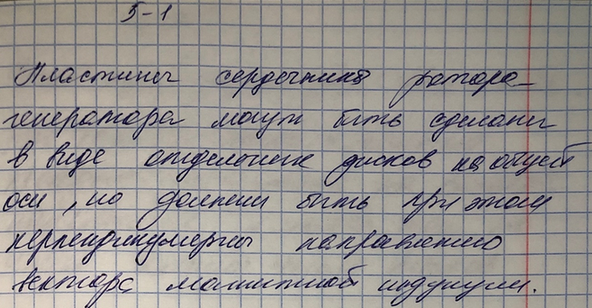 5-1
Пластины сердечника ротора
генератора могут быть сделаны
в виде отдельных дисков на общей
оси, но должны быть при этом
перпендикулярны направлению
вектора магнитной индукции.